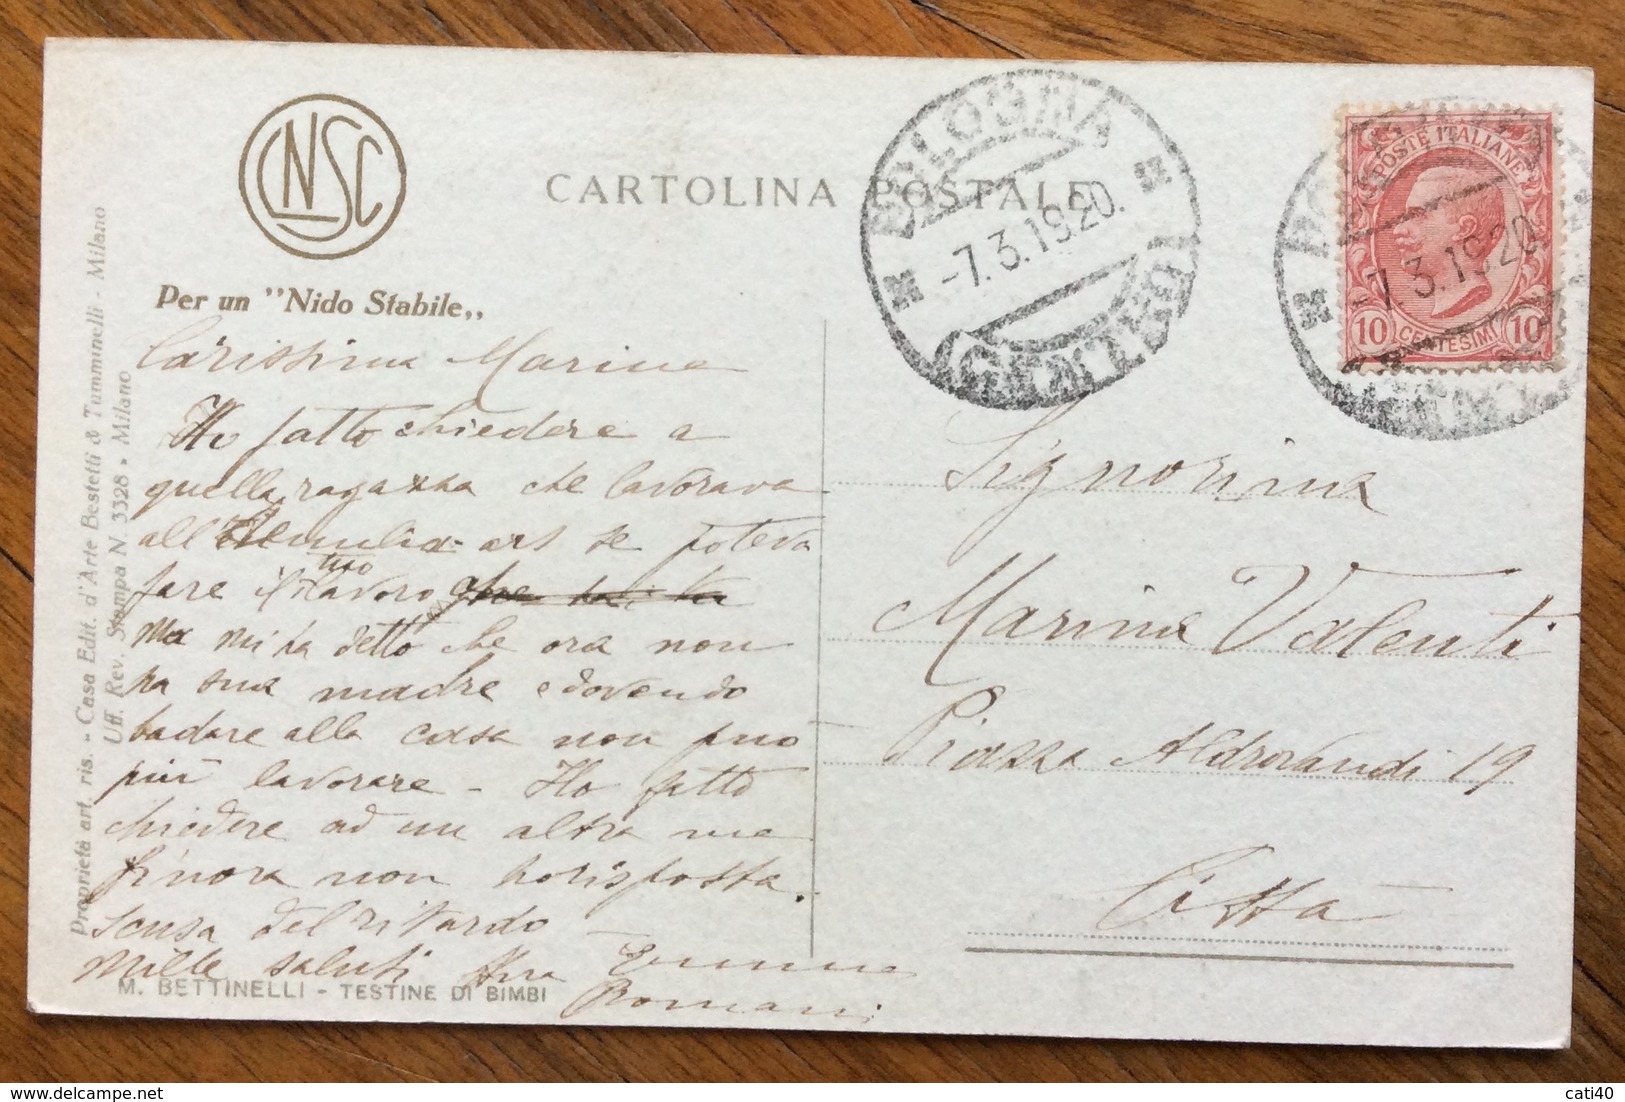 NSC
CARTOLINA POSTALE
Per un "Nido Stabile„
BOLOGNA
-7.3.1920.
(CENTRO)
POSTE ITALIANE
-7.3.1920.
10 CENTESIMI 10
Carissima Marina
Ho fatto chiedere a
quella ragazza che lavorava
all'Aemilia-ars se poteva
fare il tuo lavoro
ma mi ha detto che ora non
ha sua madre e dovendo
badare alla casa non può
più lavorare - Ho fatto
chiedere ad un altra ma
finora non ho risposta.
Scusa del ritardo -
Mille saluti tua Emma
Romani
Signorina
Marina Valenti
Piazza Aldrovandi 19
Città
M. BETTINELLI - TESTINE DI BIMBI
Proprietà art. ris. - Casa Edit. d'Arte Bestetti & Tumminelli - Milano
Uff. Rev. Stampa N. 3328 - Milano
cati40